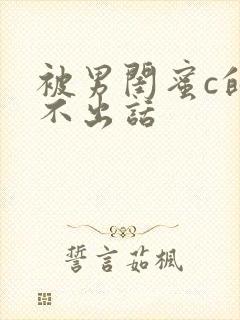 被男闺蜜c的
不出话
誓言茹枫